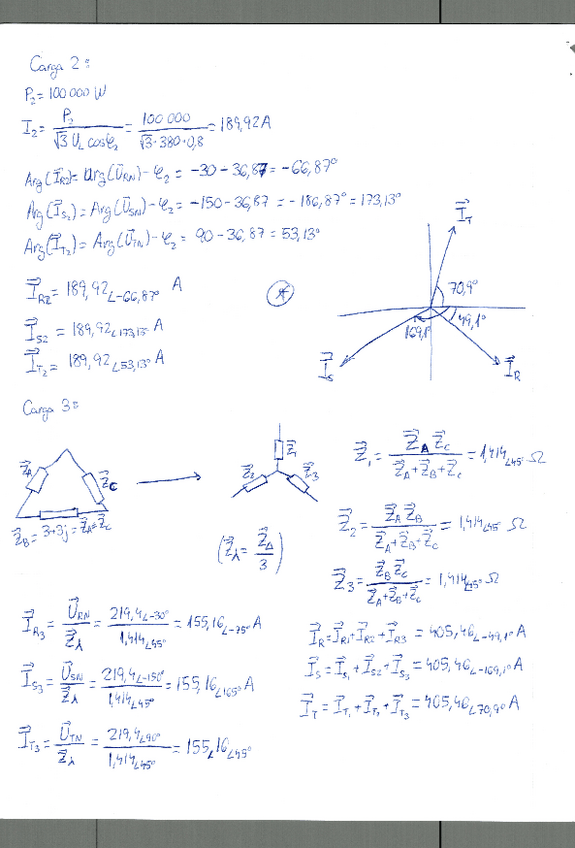 Carga 2:
P₂ = 100 000 W
I₂ = P₂ / (√3 U_L cosφ₂) = 100 000 / (√3·380·0,8) = 189,92 A
Arg(I⃗_R2) = Arg(U⃗_RN) - φ₂ = -30 - 36,87 = -66,87°
Arg(I⃗_S2) = Arg(U⃗_SN) - φ₂ = -150 - 36,87 = -186,87° = 173,13°
Arg(I⃗_T2) = Arg(U⃗_TN) - φ₂ = 90 - 36,87 = 53,13°
I⃗_R2 = 189,92∠-66,87° A
I⃗_S2 = 189,92∠173,13° A
I⃗_T2 = 189,92∠53,13° A
I⃗_T
70,9°
49,1°
169,1°
I⃗_S
I⃗_R
Carga 3:
Z⃗_A
Z⃗_C
Z⃗_B = 3+3j = Z⃗_A = Z⃗_C
Z⃗₁
Z⃗₂
Z⃗₃
(Z⃗_⅄ = Z⃗_Δ / 3)
Z⃗₁ = Z⃗_A Z⃗_C / (Z⃗_A + Z⃗_B + Z⃗_C) = 1,414∠45° Ω
Z⃗₂ = Z⃗_A Z⃗_B / (Z⃗_A + Z⃗_B + Z⃗_C) = 1,414∠45 Ω
Z⃗₃ = Z⃗_B Z⃗_C / (Z⃗_A + Z⃗_B + Z⃗_C) = 1,414∠45° Ω
I⃗_R3 = U⃗_RN / Z⃗_⅄ = 219,4∠-30° / 1,414∠45° = 155,16∠-75° A
I⃗_S3 = U⃗_SN / Z⃗_⅄ = 219,4∠-150° / 1,414∠45° = 155,16∠165° A
I⃗_T3 = U⃗_TN / Z⃗_⅄ = 219,4∠90° / 1,414∠45° = 155,16∠45°
I⃗_R = I⃗_R1 + I⃗_R2 + I⃗_R3 = 405,46∠-49,1° A
I⃗_S = I⃗_S1 + I⃗_S2 + I⃗_S3 = 405,46∠-169,1° A
I⃗_T = I⃗_T1 + I⃗_T2 + I⃗_T3 = 405,46∠70,9° A